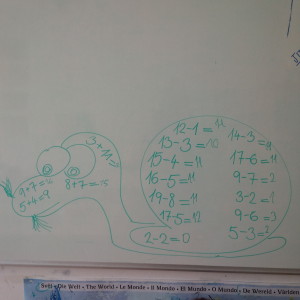 3+11=
9+7=
8+7=15
5+4=9
12-1=11
13-3=10
15-4=11
16-5=11
19-8=11
17-5=12
2-2=0
14-3=11
17-6=11
9-7=2
3-2=1
9-6=3
5-3=2
Svět • Die Welt • The World • Le Monde • Il Mondo • El Mundo • O Mundo • De Wereld • Världen